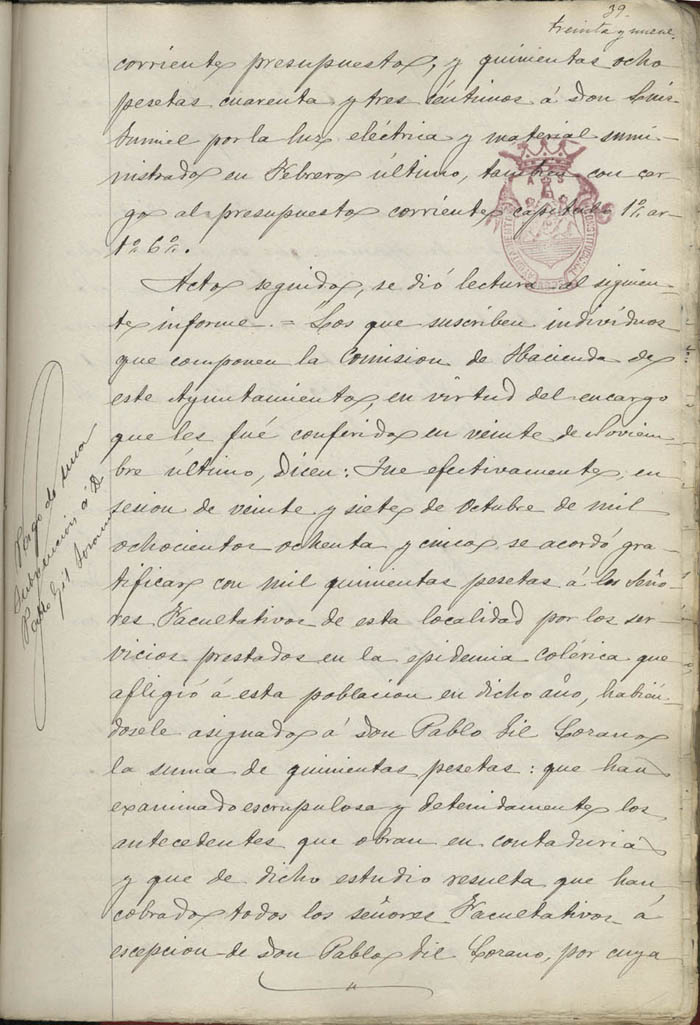 39.
treinta y nueve.
corriente presupuesto, y quinientas ocho
pesetas cuarenta y tres céntimos á don Luis
por la luz eléctrica y material sumi-
nistrado en Febrero último, tambien con car-
go al presupuesto corriente capitulo 1º, ar-
tº 6º.
Acto seguido, se dió lectura al siguien-
te informe. = Los que suscriben individuos
que componen la Comision de Hacienda de
este Ayuntamiento, en virtud del encargo
que les fué conferido en veinte de Noviem-
bre último, Dicen: Que efectivamente, en
sesion de veinte y siete de Octubre de mil
ochocientos ochenta y cinco se acordó gra-
tificar con mil quinientas pesetas á los Seño-
res Facultativos de esta localidad por los ser-
vicios prestados en la epidemia colérica que
afligió á esta poblacion en dicho año, habién-
dosele asignado á don Pablo Gil Lozano
la suma de quinientas pesetas: que han
examinado escrupulosa y detenidamente los
antecedentes que obran en contaduria
y que de dicho estudio resulta que han
cobrado todos los señores Facultativos á
escepcion de don Pablo Gil Lozano, por cuya
Pago de una
subvencion á D.
Pablo Gil Lozano